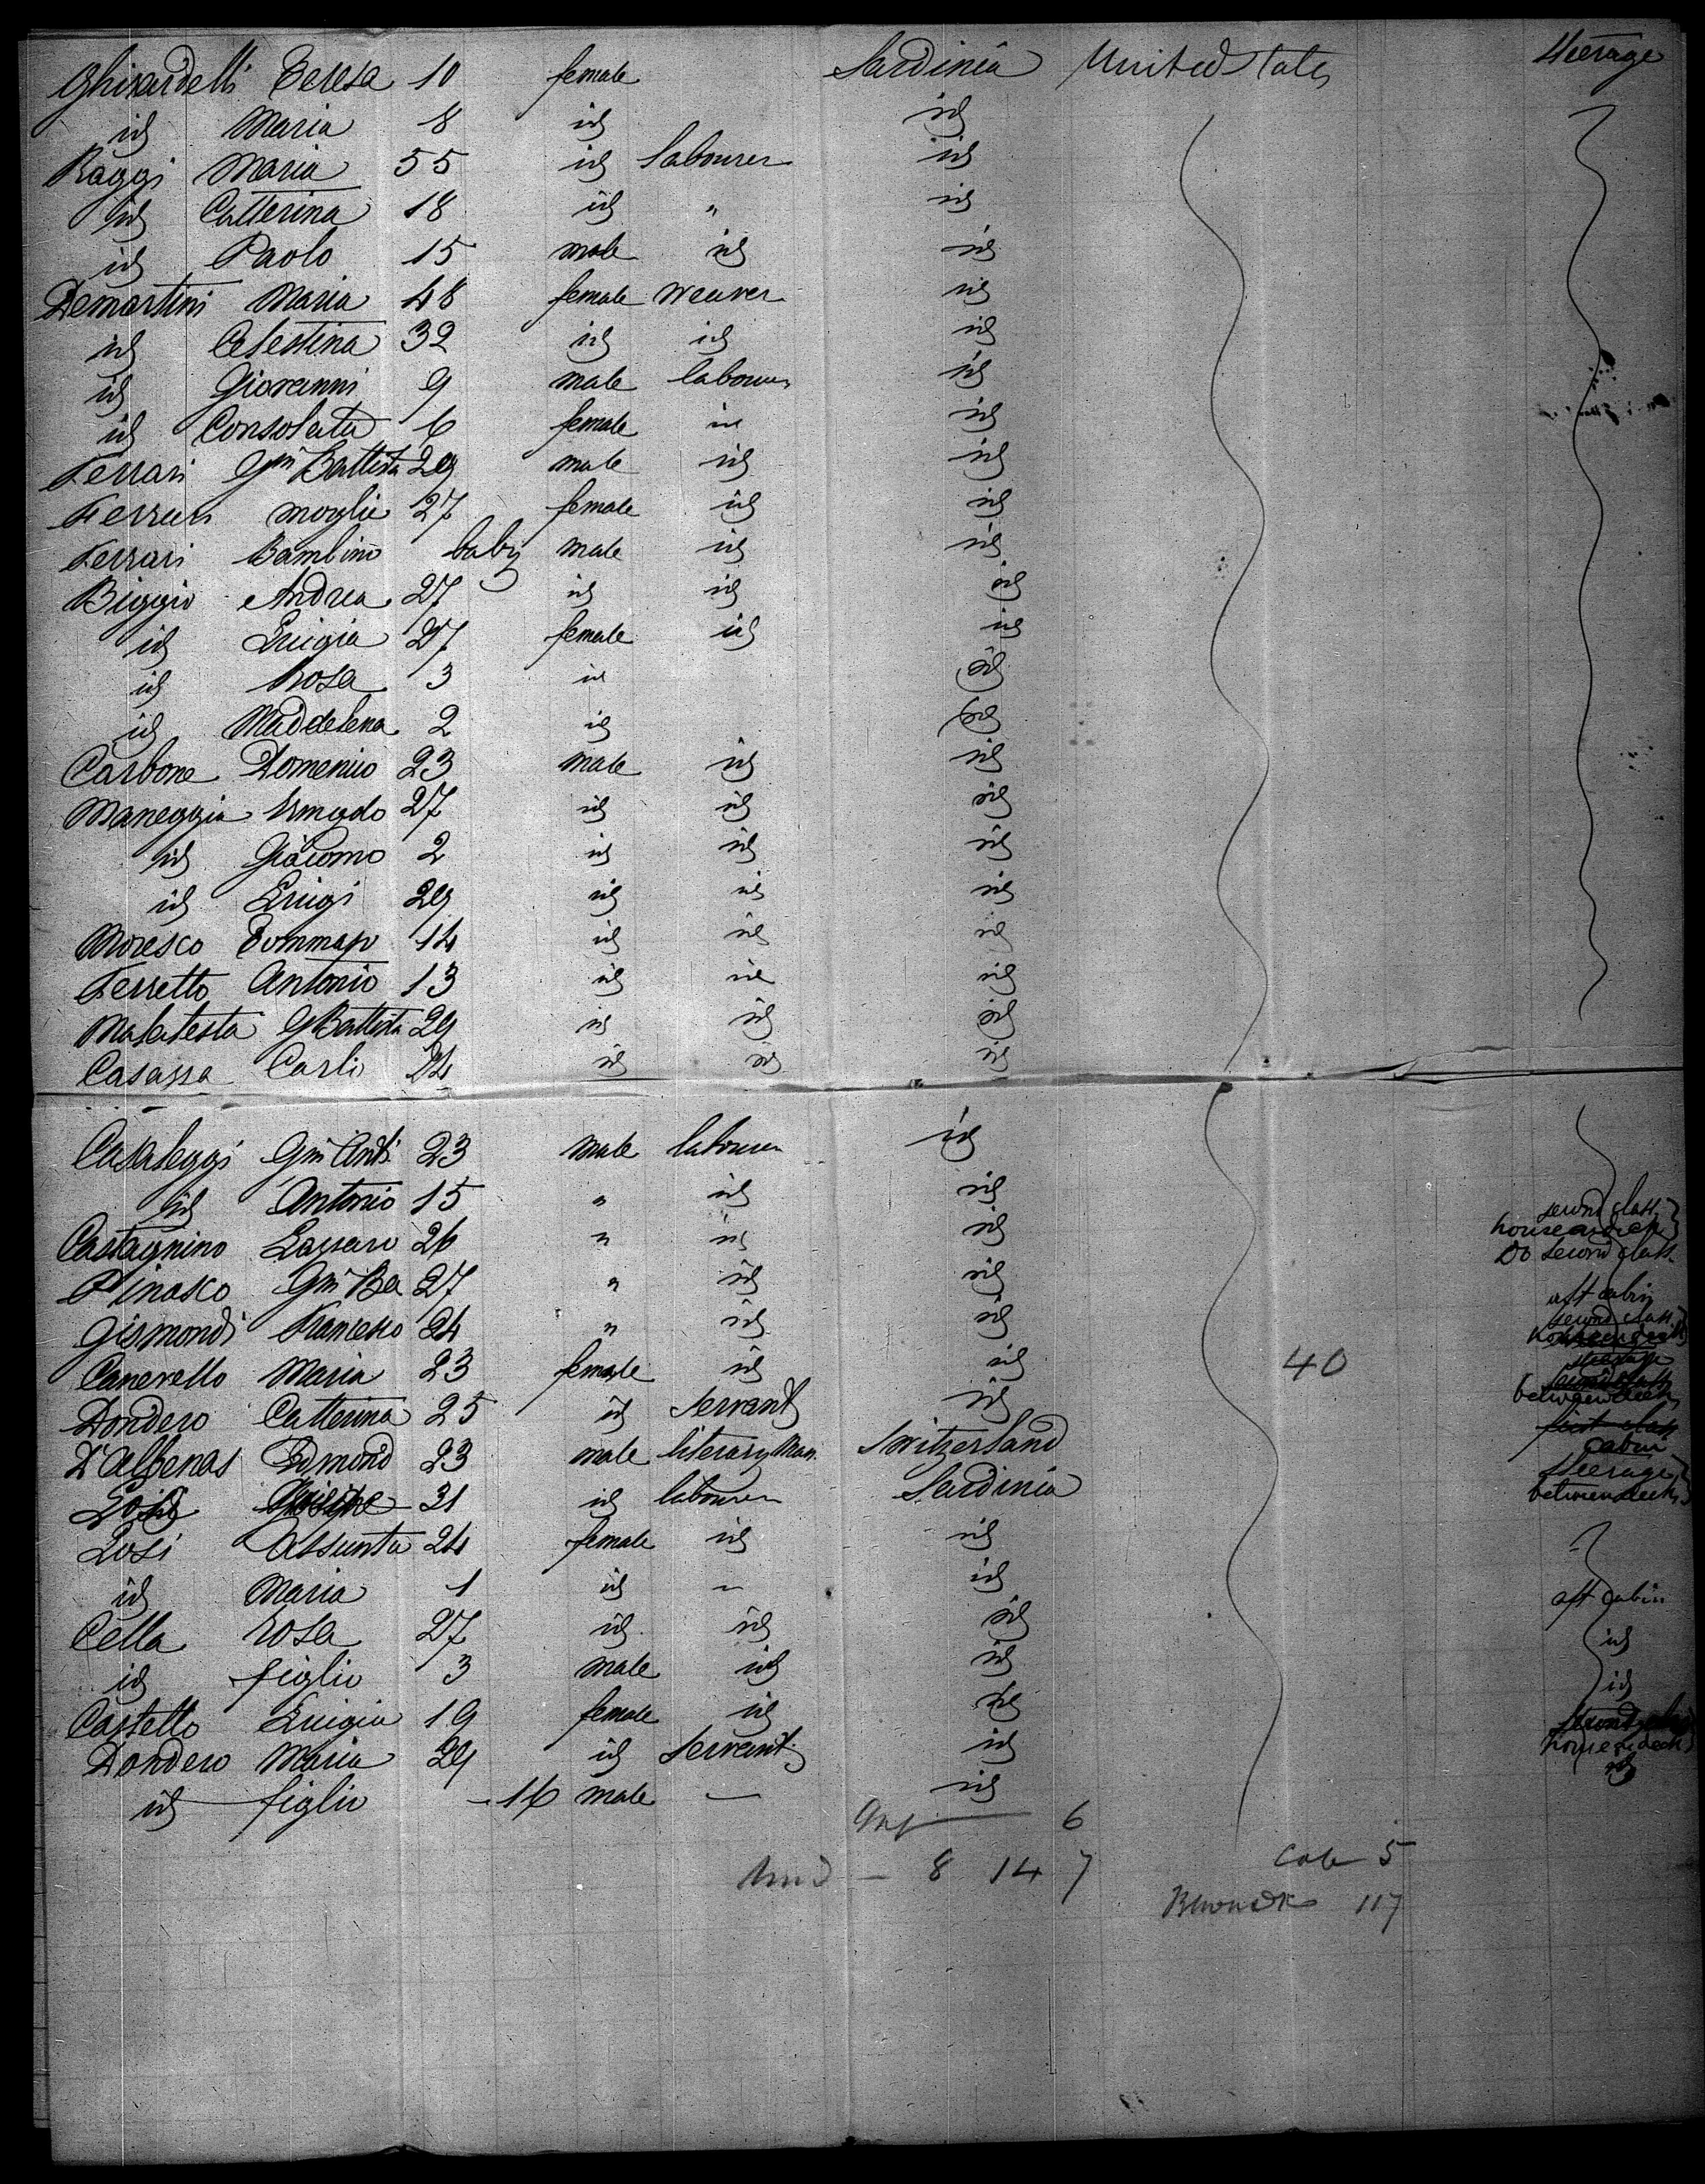 Ghirardelli Teresa 10 female Sardinia United States Steerage
id Maria 8 id id
Raggi Maria 55 id labourer id
id Catterina 18 id " id
id Paolo 15 male id id
Demartini Maria 48 female weaver id
id Celestina 32 id id id
id Giovanni 9 male labourer id
id Consolata 6 female id id
Ferrari Gm Battista 29 male id id
Ferrari moglie 27 female id id
Ferrari Bambino baby male id id
Biggio Andrea 27 id id id
id Luigia 27 female id id
id Rosa 3 id id
id Maddelena 2 id id
Carbone Domenico 23 male id id
Maneggia 27 id id id
id Giacomo 2 id id id
id Luigi 29 id id id
Moresco Tommaso 14 id id id
Ferretto Antonio 13 id id id
Malatesta G Battista 29 id id id
Casassa Carlo 24 id id id
Casaleggi Gm Anto 23 male labourer id
id Antonio 15 " id id
second class
house on deck
Castagnino Lazzaro 26 " id id Do second class
Pinasco Gm Ba 27 " id id aft cabin
second class
Gismondi Francesco 24 " id id
Canevello Maria 23 female id id 40 steerage
between decks
Dondero Catterina 25 id servant id first class
cabin
D'Albenas Edmond 23 male literary Man Switzerland steerage
Losi Giuseppe 31 id labourer Sardinia between decks
Losi Assunta 24 female id id
id Maria 1 id " id aft cabin
Cella Rosa 27 id id id id
id figlio 3 male id id id
Castello Luigia 19 female id id second class
Dondero Maria 29 id servant id house on deck
id
id figlio - 16 male — id
Inf — 6
8 14 7 Cab 5
117